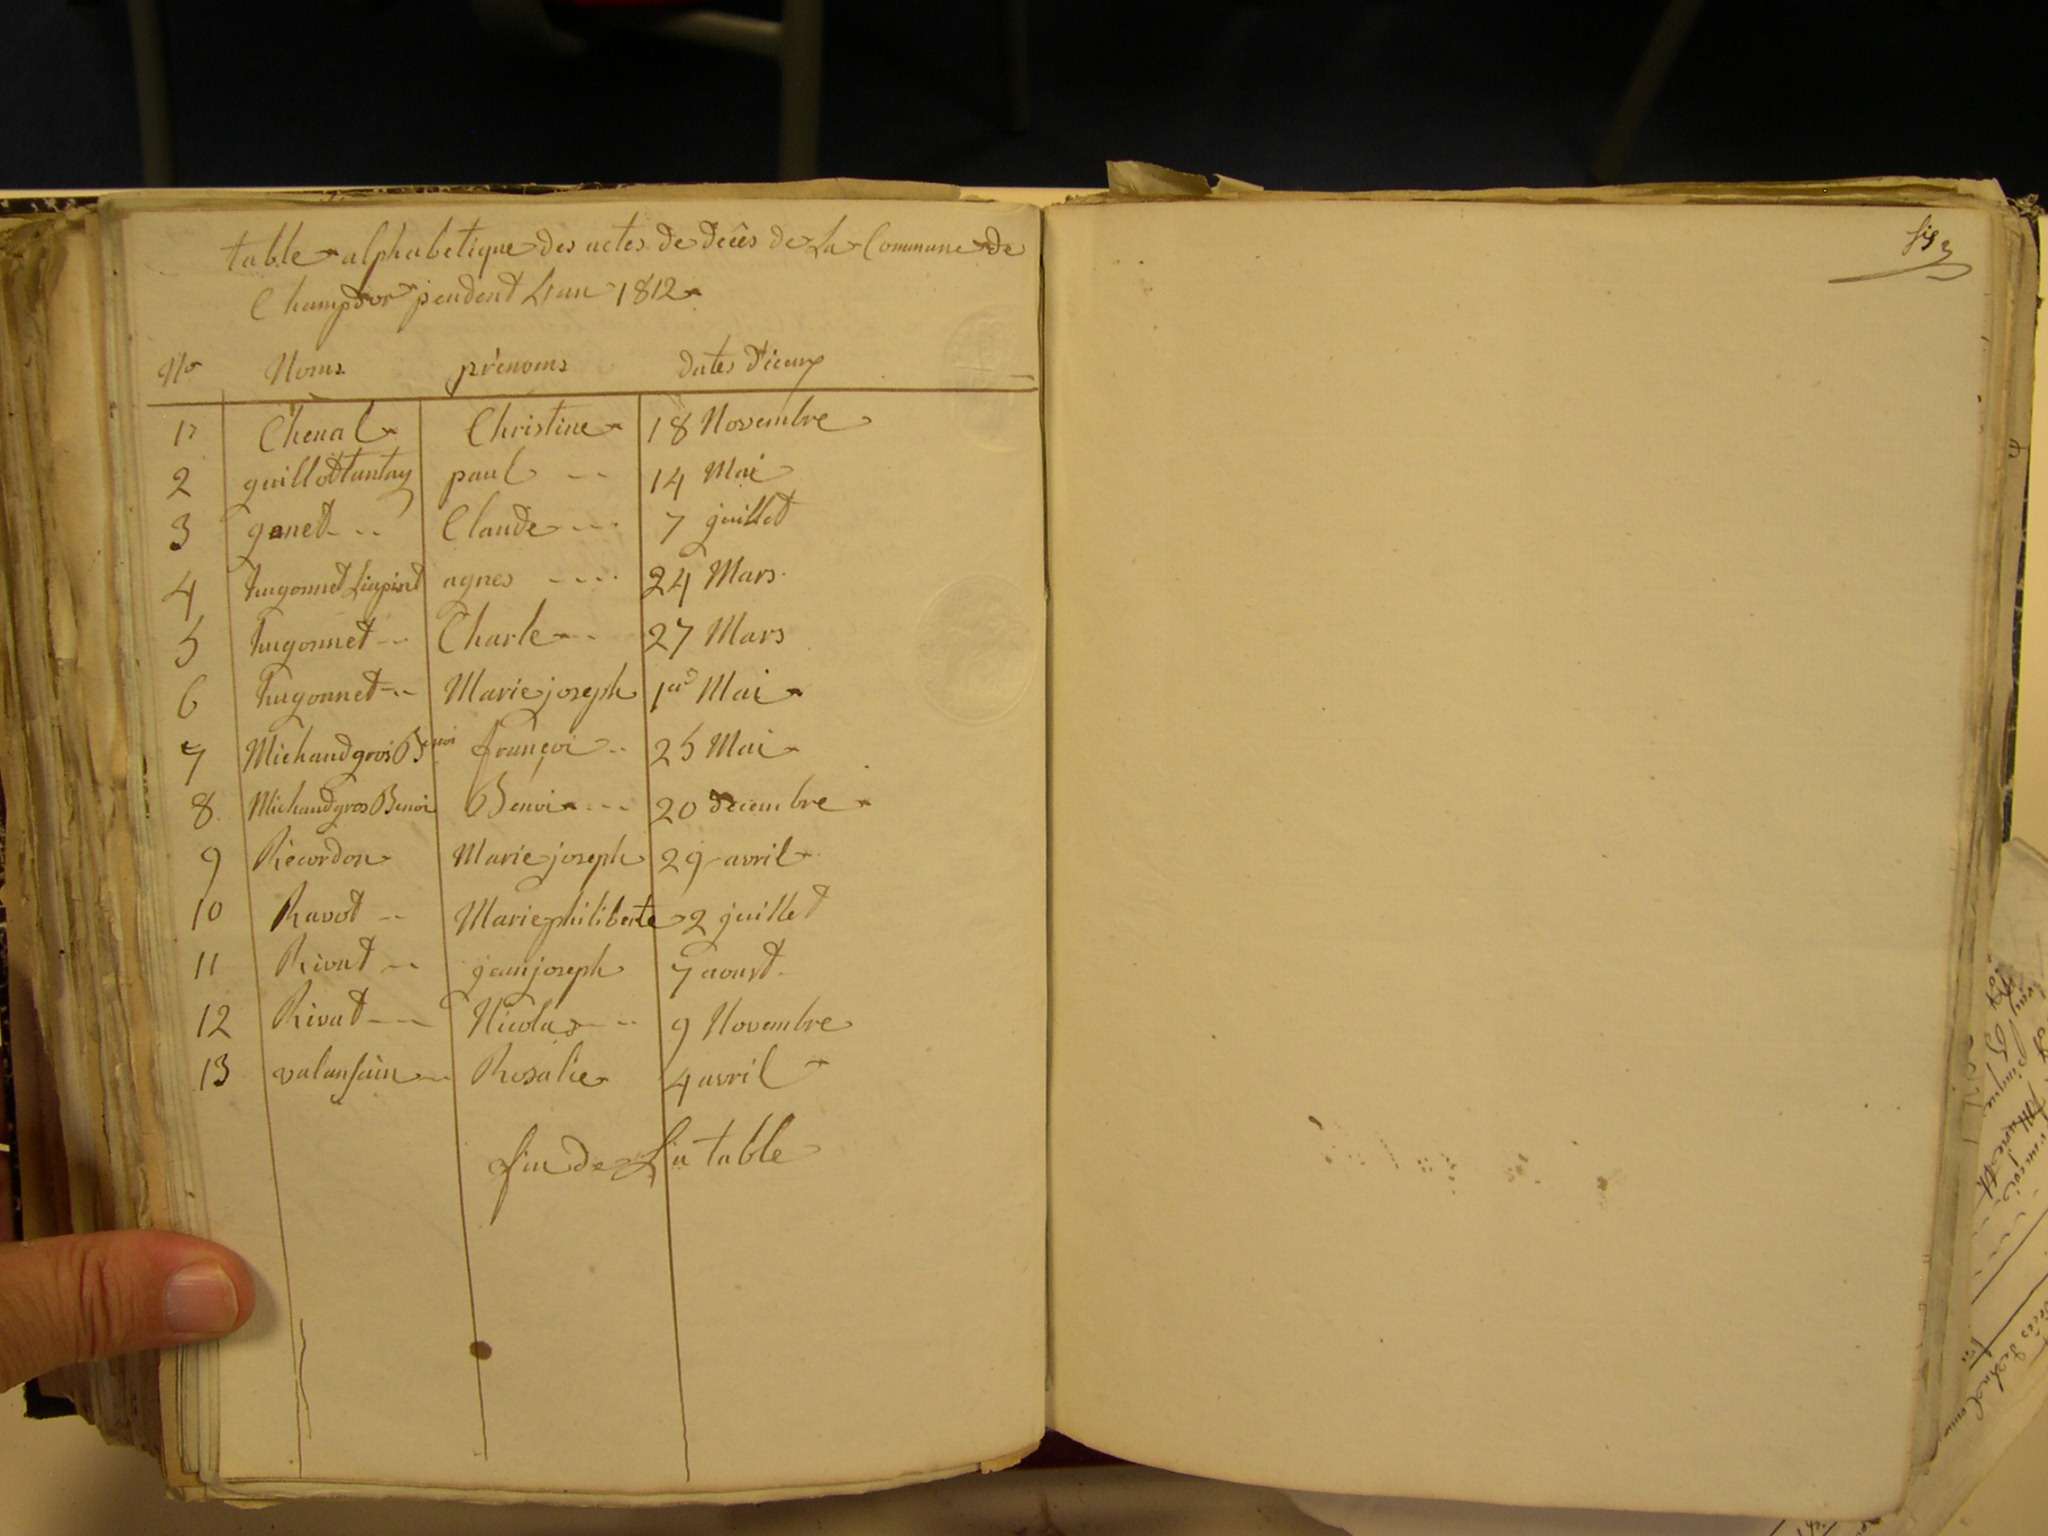 table alphabetique des actes de decès de La Commune de
Champdor pendent L'an 1812
No Noms prénoms dates d'iceux
1 Chenal Christine 18 Novembre
2 guillottantay paul 14 Mai
3 ganet Claude 7 juillet
4 hugonnet agnes 24 Mars
5 hugonnet Charle 27 Mars
6 hugonnet Marie joseph 1er Mai
7 Michaud gros Benoi françoi 25 Mai
8 Michaud gros Benoi Benoi 20 decembre
9 Récordon Marie joseph 29 avril
10 Ravot Marie philiberte 2 juillet
11 Rivat jean joseph 7 aoust
12 Rivat Nicolas 9 Novembre
13 valansain Rosalie 4 avril
fin de La table
six